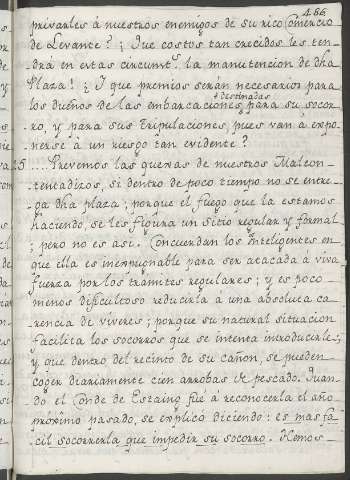 466
privarles á nuestros enemigos de su rico Comercio
de Levante? ¡Que costos tan crecidos les ten-
drá en estas circunst.s la manutencion de dha
Plaza! ¿Y que premios serán necesarios para
los dueños de las embarcaciones destinadas para su socor-
ro, y para sus tripulaciones, pues van á expo-
nerse á un riesgo tan evidente?
5....Prevemos las quexas de nuestros Malcon-
tentadizos, si dentro de poco tiempo no se entre-
ga dha plaza; porque el fuego que la estamos
haciendo, se les figura un sitio regular y formal
; pero no es asi. Concuerdan los Inteligentes en
que ella es inexpugnable para ser atacada á viva
fuerza por los tramites regulares; y es poco
menos dificultoso reducirla á una absoluta ca-
rencia de víveres; porque su natural situacion
facilita los socorros que se intenta introducirle;
y que dentro del recinto de su cañon, se pueden
coger diariamente cien arrobas de pescado. Quan-
do el Conde de Estaing fué á reconocerla el año
próximo pasado, se explicó diciendo: es mas fa-
cil socorrerla que impedir su socorro. Hemos